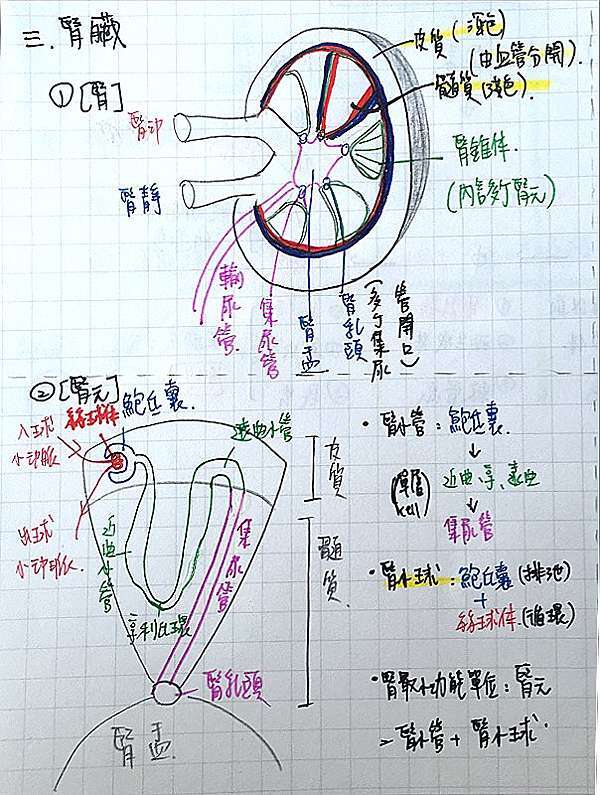 三. 腎臟
①[腎]
皮質(深色)
(由血管分開).
髓質(淺色).
腎動
腎靜
腎錐体.
(內含多個腎元)
輸尿管.
集尿管
腎盂
腎乳頭
(多個集尿
管開口)
②[腎元]
鮑氏囊.
絲球体
入球
小動脈
出球
小動脈
遠曲小管
近曲小管
亨利氏環
集尿管
皮質
髓質.
腎乳頭
腎盂
・腎小管:鮑氏囊.
↓
(單層
cell)
近曲、亨、遠曲
↓
集尿管
・腎小球:鮑氏囊(排泄)
+
絲球体.(循環)
・腎最小功能單位:腎元
=腎小管+腎小球.